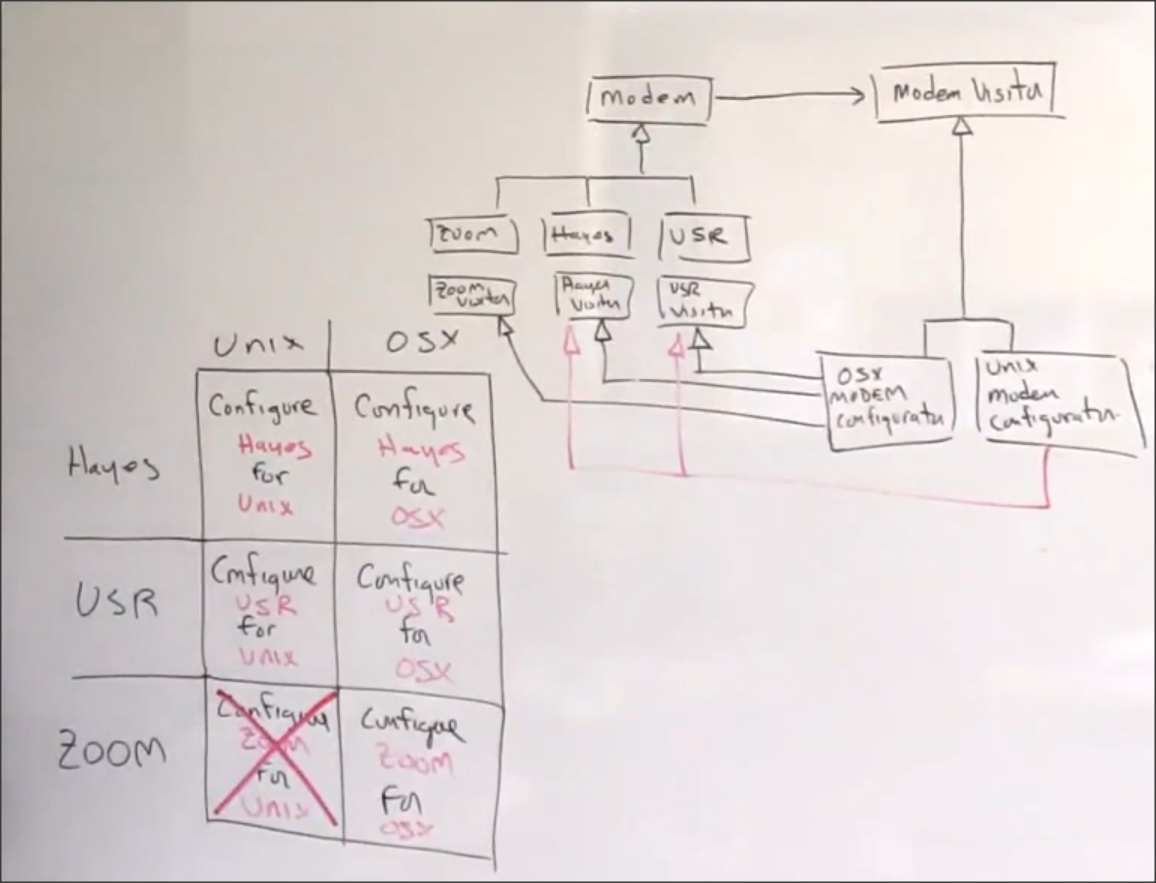 Modem
Modem Visitor
Zoom
Hayes
USR
Zoom
Visitor
Hayes
Visitor
USR
Visitor
OSX
MODEM
Configurator
Unix
modem
Configurator
Unix
OSX
Hayes
Configure
Hayes
for
Unix
Configure
Hayes
for
OSX
USR
Configure
USR
for
Unix
Configure
USR
for
OSX
ZOOM
Configure
Zoom
for
Unix
Configure
Zoom
For
OSX